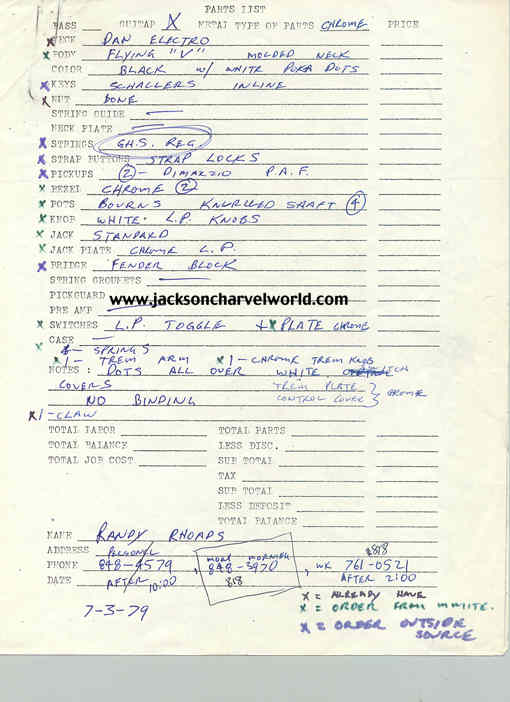 PARTS LIST
BASS GUITAR X METAL TYPE OF PARTS CHROME PRICE
X NECK DAN ELECTRO
X BODY FLYING "V" MOLDED NECK
COLOR BLACK W/ WHITE POKA DOTS
X KEYS SCHALLERS INLINE
X NUT BONE
STRING GUIDE
NECK PLATE
X STRINGS GH.S. REG.
X STRAP BUTTONS STRAP LOCKS
X PICKUPS (2) - DIMARZIO P.A.F.
X BEZEL CHROME (2)
X POTS BOURNS KNURLLED SHAFT (4)
X KNOB WHITE L.P. KNOBS
X JACK STANDARD
X JACK PLATE CHROME L.P.
X BRIDGE FENDER BLOCK
STRING GROMMETS
PICKGUARD
www.jacksoncharvelworld.com
PRE AMP
X SWITCHES L.P. TOGGLE + X PLATE CHROME
X CASE
6 - SPRINGS
X 1 - TREM ARM X 1 - CHROME TREM KNOB
NOTES: DOTS ALL OVER WHITE
COVERS TREM PLATE
NO BINDING CONTROL COVER } CHROME
X 1 - CLAW
TOTAL LABOR TOTAL PARTS
TOTAL BALANCE LESS DISC.
TOTAL JOB COST SUB TOTAL
TAX
SUB TOTAL
LESS DEPOSIT
TOTAL BALANCE
NAME RANDY RHOADS
ADDRESS PERSONAL
PHONE 848-4579, MORNING 848-3970, WK 761-0521
818
DATE AFTER 10:00 818 AFTER 2:00
7-3-79
X = ALREADY HAVE
X = ORDER FROM
X = ORDER OUTSIDE
SOURCE